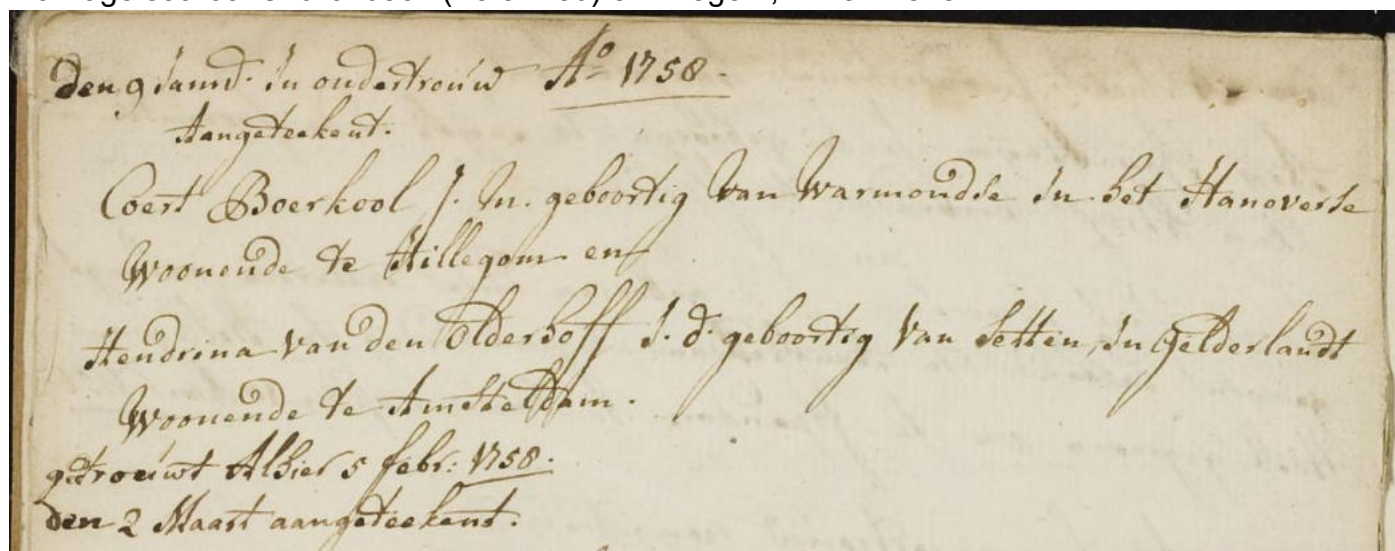 den 9 Janu: In ondertrouw A° 1758.
Aangeteekent.
Coert Boerkool J. m. geboortig van Warmondse in het Hanoverse
Woonende te Hillegom en
Hendrina van den Olderhoff J. d. geboortig van Setten, in Gelderlandt
Woonende te Amsteldam.
getrouwt Alhier 5 febr: 1758.
den 2 Maart aangeteekent.